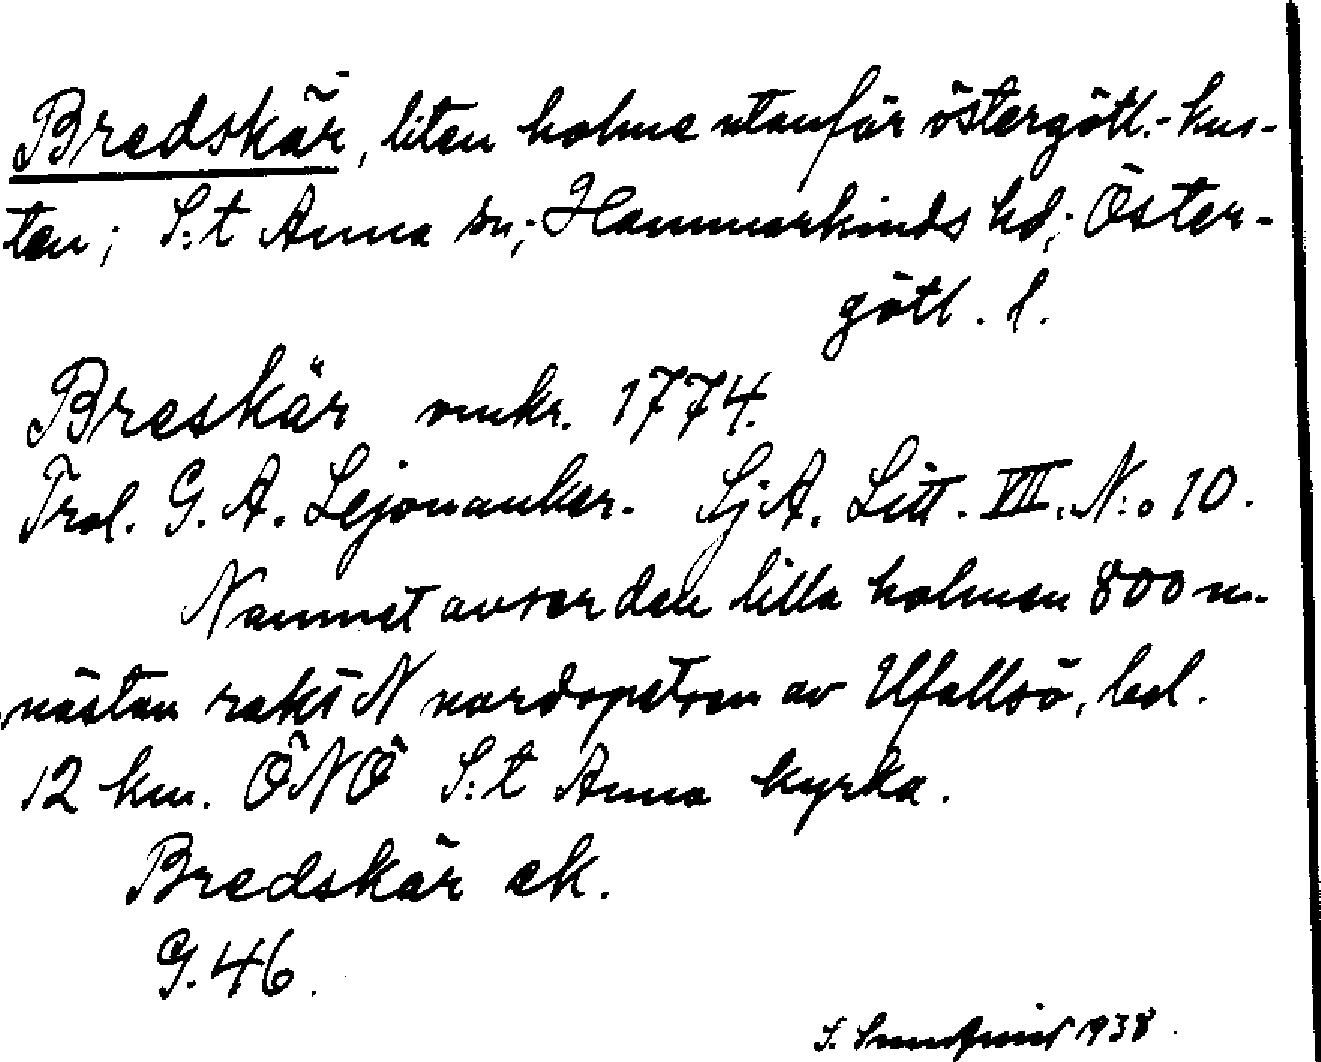 Bredskär, liten holme utanför östergötl.-kus-
ten; S:t Anna sn; Hammarkinds hd; Öster-
götl. l.
Breskär omkr. 1774.
Trol. G. A. Lejonanker. Sj.A. Litt. VII. N:o 10.
Namnet avser den lilla holmen 800 m.
nästan rakt N nordspetsen av Ufallsö, bel.
12 km. ÖNÖ S:t Anna kyrka.
Bredskär ek.
G. 46.
S. 1938.